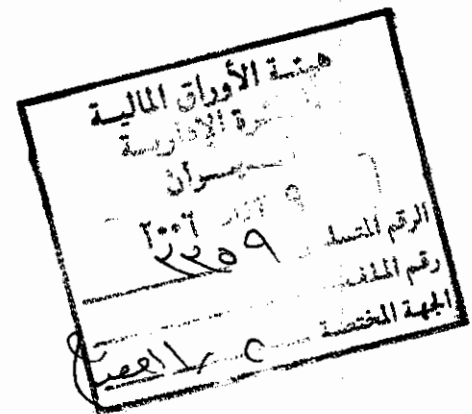 هيئة الأوراق المالية
الدائرة الإدارية
الديوان
٩ آذار ٢٠٠٦
الرقم المتسلسل
رقم الملف
الجهة المختصة